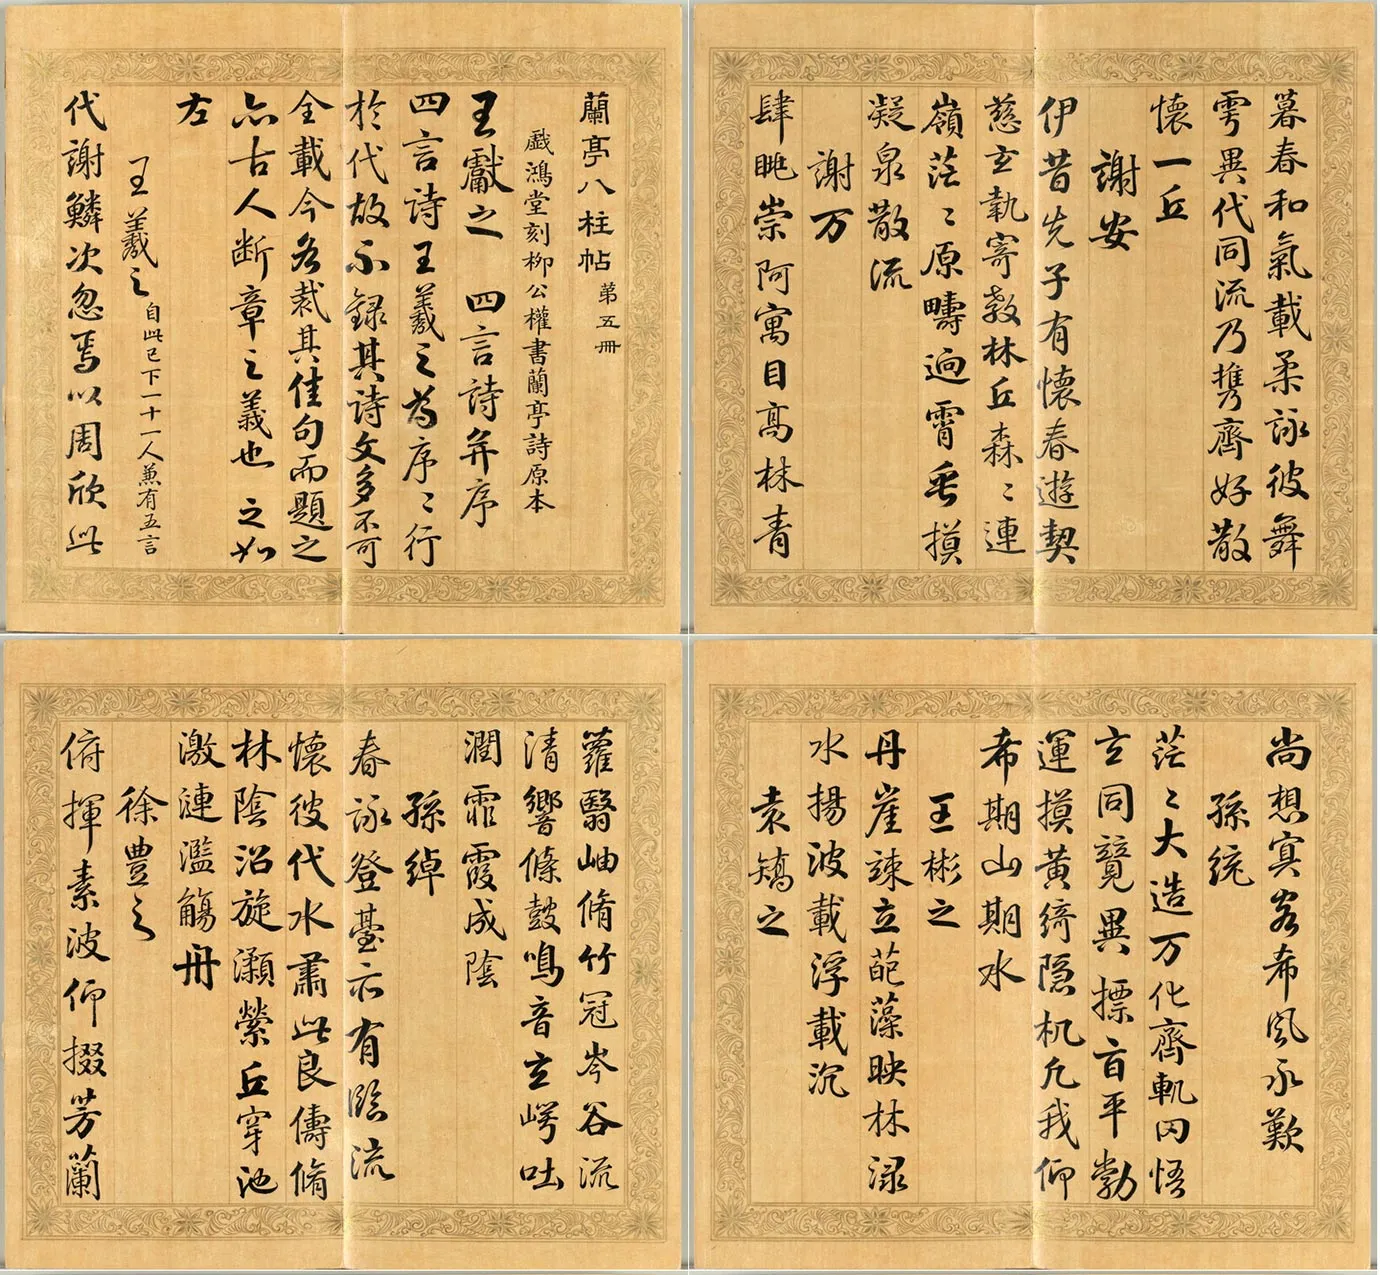 蘭亭八柱帖 第五冊
戲鴻堂刻柳公權書蘭亭詩原本
王獻之 四言詩并序
四言詩王羲之為序〻行
於代故不錄其詩文多不可
全載今各裁其佳句而題之
亦古人断章之義也 之如
左
王羲之 自此已下一十一人兼有五言
代謝鱗次忽焉以周欣此
暮春和氣載柔詠彼舞
雩異代同流乃攜齊好散
懷一丘
謝安
伊昔先子有懷春遊契
慈玄執寄敖林丘森〻連
嶺茫〻原疇逈霄垂摸
凝泉散流
謝万
肆眺崇阿寓目高林青
蘿翳岫脩竹冠岑谷流
清響條鼓鳴音玄崿吐
潤霏霞成陰
孫綽
春詠登臺亦有臨流
懷彼代水肅此良儔脩
林陰沼旋瀨縈丘穿池
激漣濫觴冊
徐豊之
俯揮素波仰掇芳蘭
尚想冥客希風永歎
孫統
茫〻大造万化齊軌罔悟
玄同競異摽旨平勃
運摸黃綺隱机凡我仰
希期山期水
王彬之
丹崖竦立葩藻映林淥
水揚波載浮載沉
袁矯之